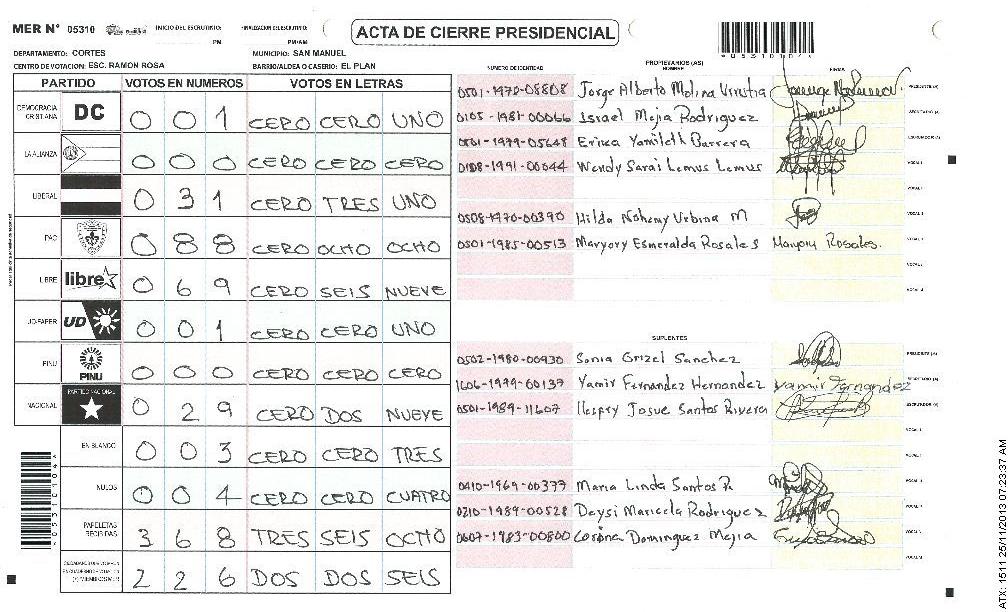 MER N° 05310 INICIO DEL ESCRUTINIO: PM FINALIZACION DEL ESCRUTINIO: PM/AM
ACTA DE CIERRE PRESIDENCIAL
DEPARTAMENTO: CORTES MUNICIPIO: SAN MANUEL
CENTRO DE VOTACION: ESC. RAMON ROSA BARRIO/ALDEA O CASERIO: EL PLAN
PARTIDO VOTOS EN NUMEROS VOTOS EN LETRAS
DEMOCRACIA CRISTIANA DC 0 0 1 CERO CERO UNO
LA ALIANZA 0 0 0 CERO CERO CERO
LIBERAL 0 3 1 CERO TRES UNO
PAC 0 8 8 CERO OCHO OCHO
LIBRE libre 0 6 9 CERO SEIS NUEVE
UD-FAPER UD 0 0 1 CERO CERO UNO
PINU PINU 0 0 0 CERO CERO CERO
NACIONAL PARTIDO NACIONAL 0 2 9 CERO DOS NUEVE
EN BLANCO 0 0 3 CERO CERO TRES
NULOS 0 0 4 CERO CERO CUATRO
PAPELETAS RECIBIDAS 3 6 8 TRES SEIS OCHO
2 2 6 DOS DOS SEIS
PROPIETARIOS (AS)
NUMERO DE IDENTIDAD NOMBRE FIRMA
0501-1970-08808 Jorge Alberto Molina Urrutia PRESIDENTE (A)
0105-1981-00066 Israel Mejia Rodriguez SECRETARIO (A)
0501-1979-05648 Erica Yamileth Barrera ESCRUTADOR (A)
0108-1991-00044 Wendy Sarai Lemus Lemus VOCAL 1
0508-1970-00390 Hilda Nohemy Urbina M
0501-1985-00513 Maryory Esmeralda Rosales S Maryory Rosales.
SUPLENTES
0502-1980-00930 Sonia Grizel Sanchez PRESIDENTE (A)
1606-1979-00137 Yamir Fernandez Hernandez Yamir Fernandez SECRETARIO (A)
0501-1989-11607 Josue Santos Rivera ESCRUTADOR (A)
0410-1969-00377 Maria Linda Santos R
0210-1989-00528 Deysi Maricela Rodriguez
0607-1983-00800 Dominguez Mejia
ATX: 1511 25/11/2013 07:23:37 AM